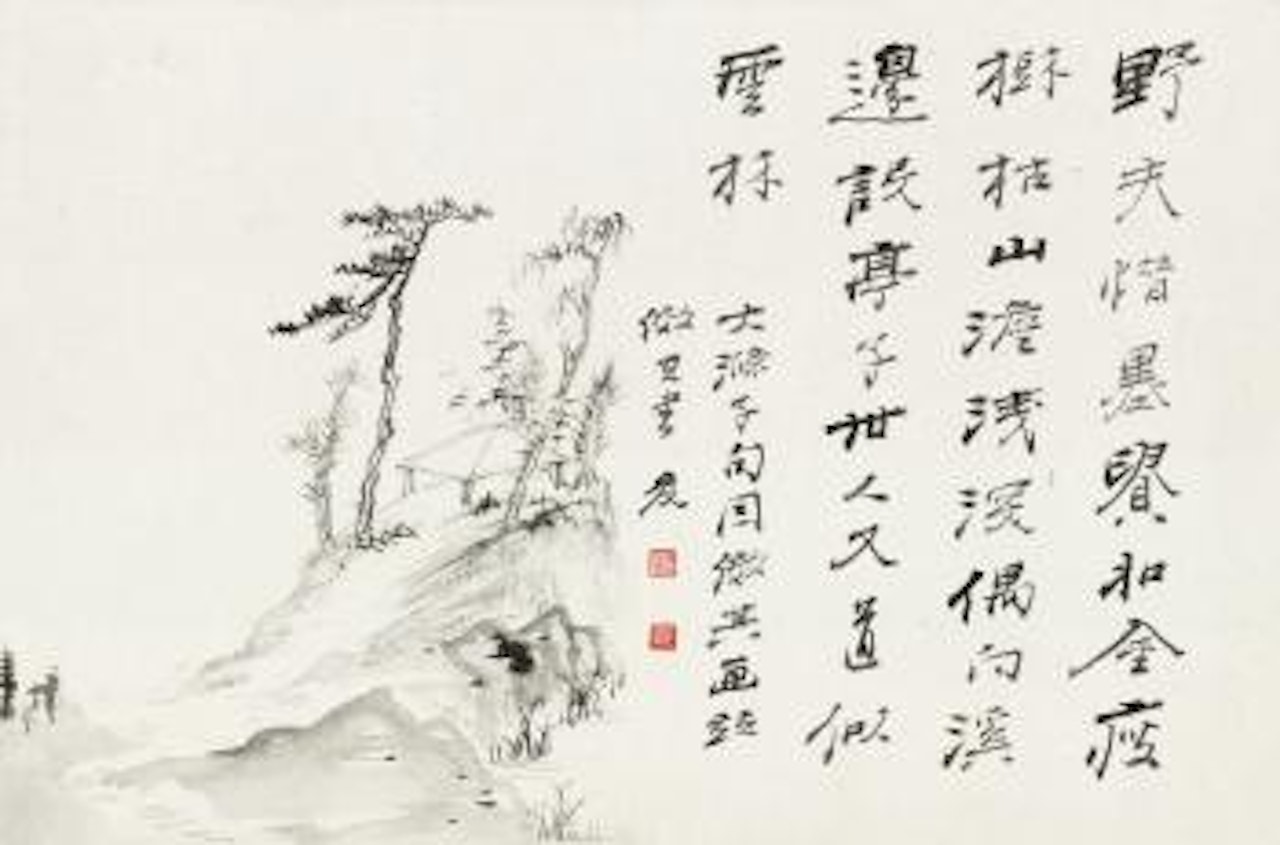 野夫惜墨賢如金瘦
樹枯山澹淺深偶向溪
邊設亭子世人又道似
雲林
大滌子句因倣其画並
倣其書 爰